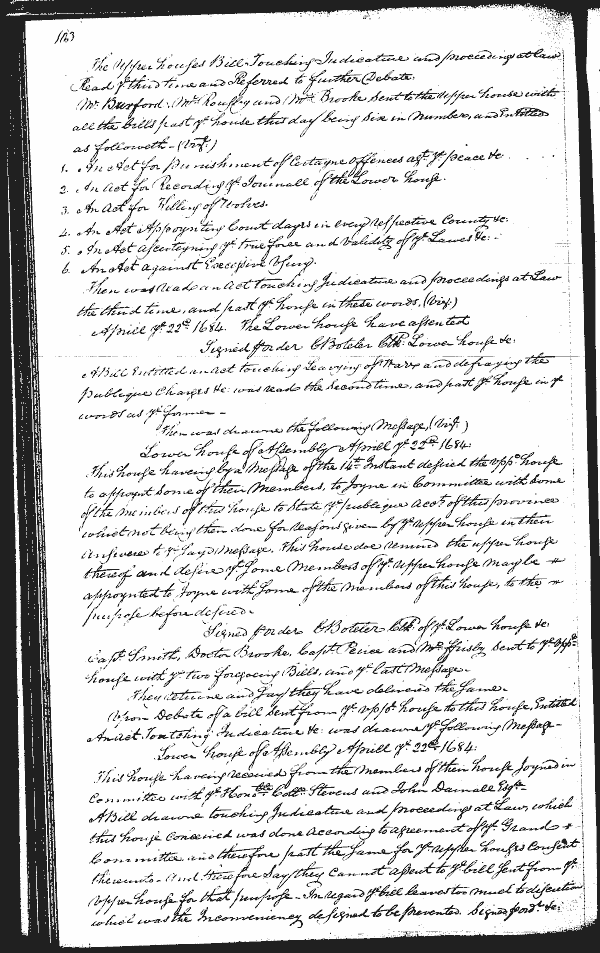 103
The Upper houses Bill Touching Judicature and proceedings at law
Read ye third time and Referred to further Debate.
Mr Burford, Mr Rousby and Mr Brooke sent to the upper house with
all the bills past ye house this day being Six in Number, and Entitled
as followeth - (Vizt)
1. An Act for punishment of Certayne offences agt ye peace &c
2. An Act for Recording ye Journall of the Lower house.
3. An Act for Killing of Wolves.
4. An Act Appoynting Court dayes in every respective County &c.
5. An Act ascertayning ye true force and Validity of ye Lawes &c.
6. An Act against Excessive Usury.
Then was read an act touching Judicature and proceedings at Law
the third time, and past ye house in these words. (Vizt)
Aprill ye 22d. 1684. The Lower house have assented
Signed p order C Boteler Clk. Lower house &c.
A Bill Entitled an act touching Leavying of Warr and defraying the
publique Charges &c. was read the Second time, and past ye house in ye
words as ye former -
Then was drawne the following Message, (Vizt)
Lower house of Assembly Aprill ye 22d 1684
This house haveing by a Message of the 14th Instant desired the uppr house
to appoynt some of their Members, to Joyne in Committee with Some
of the Members of this house to State ye publique Accots of this province
which not being then done for reasons given by ye upper house in their
Answere to ye Sayd Message. This house doe remind the upper house
thereof and desire yt Some Members of ye upper house may be
appoynted to Joyne with Some of the Members of this house, to the
purpose before desired.
Signed p order C Boteler Clk of ye Lower house &c.
Capt. Smith, Doctor Brooke, Capt. Peirce and Mr ffrisby Sent to ye uppr
house with ye two foregoing Bills, and ye last Message.
They returne and Say they have delivered the Same.
Upon Debate of a bill Sent from ye uppr house to this house, Entitled
An Act Touching Judicature &c. was drawne ye following Message -
Lower house of Assembly Aprill ye 22d 1684.
This house haveing received from the Members of their house Joyned in
Committee with ye Honoble Coll. Stevens and John Darnall Esqr
A Bill drawne touching Judicature and proceedings at Law, which
this house Conceived was done According to agreement of ye Grand
Committee and therefore past the Same for ye upper houses Consent
thereunto - And therefore Say they cannot assent to ye bill Sent from ye
Upper house for that purpose - In regard ye bill leaves too much to discretion
which was the Inconveniency designed to be prevented. Signed p ordr &c.